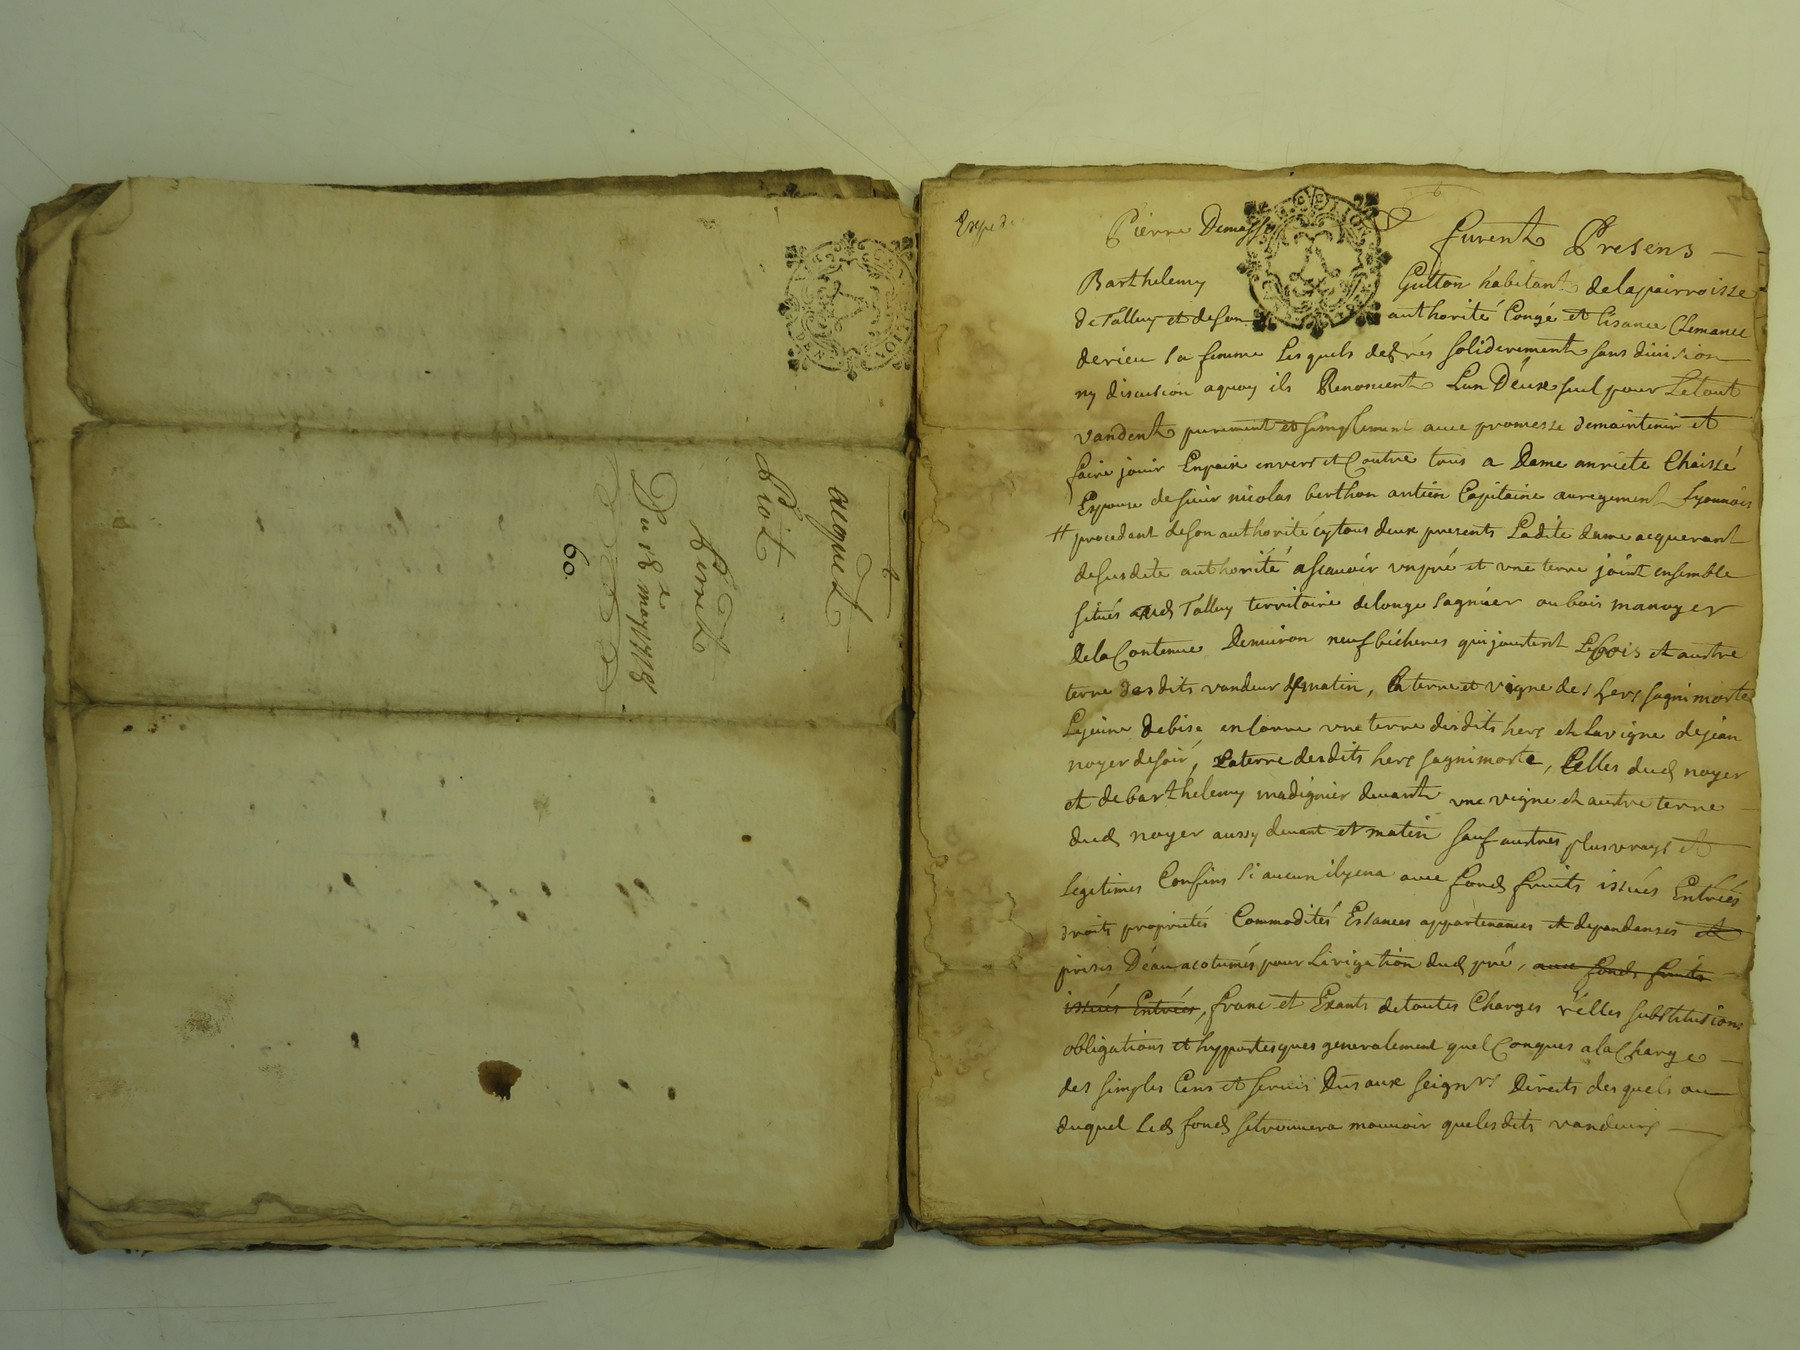 acquest
Piot
Du 28e may 1718
60.
Exped.
furent Presens
Barthelemy Gutton habitant delapairroisse
de Talluy et deson authorité Congé et licance Clemance
derieu sa femme Lesquels degrés soliderement sans diuision
ny discusion aquoy ils Renoncent Lun Déuxseul pour Letout
vandent purement et simplement auec promesse demaintenir et
faire jouir Enpaix envers et Contre tous a Dame anriete Chaissé
Espouze de sieur nicolas berthon antien Capitaine auregement Lyonnois
# procedant deson authorité cytous deux presents Ladite dame acquerant
desusdite authorité ascauoir vnpré et vne terre joint ensemble
situés aud Talluy territoire delonge sagniier oubois manoyer
Dela Contenue Denuiron neuf bicherés quijoustent Lebois et austre
terre desdits vandeur dematin, la terre et vigne des hers sagnimorte
Lejeune debise, vne terre desdits hers et lavigne dejean
noyer desoir, Laterre desdits hers sagnimorte, Celles dud noyer
et de barthelemy madignier deuant vne vigne et austre terre
dud noyer aussy deuant et matin sauf austres plus vrays et
légitimes Confins si aucun ilyena auec fond fruits issues Entrées
droits propriettés Commodités Essances appartenances et dependenses et
prises Déau acotumés pour Lirigation dud pré, auec fonds fruits
issues Entrées, franc et Exants detoutes Charges réelles substitutions
obligations et hyppotesques generalement quel Conques ala Charge
des simples Cens et seruis Dus aux seigнrs Directs desquels ou
duquel Led fond setrouuera mouuoir quelesdits vandeurs